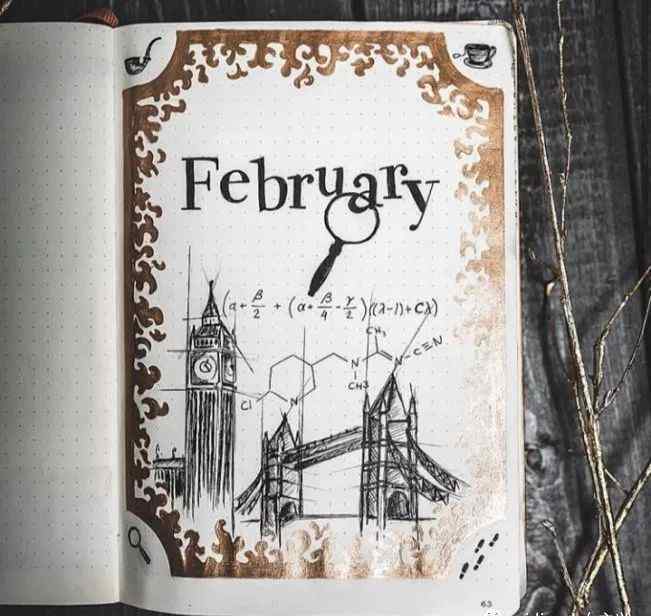 February
(α + β/2 + (α + β/4 - γ/2)((λ-1) + Cλ)
CH₃
N
N-C≡N
CH3
Cl
N
63